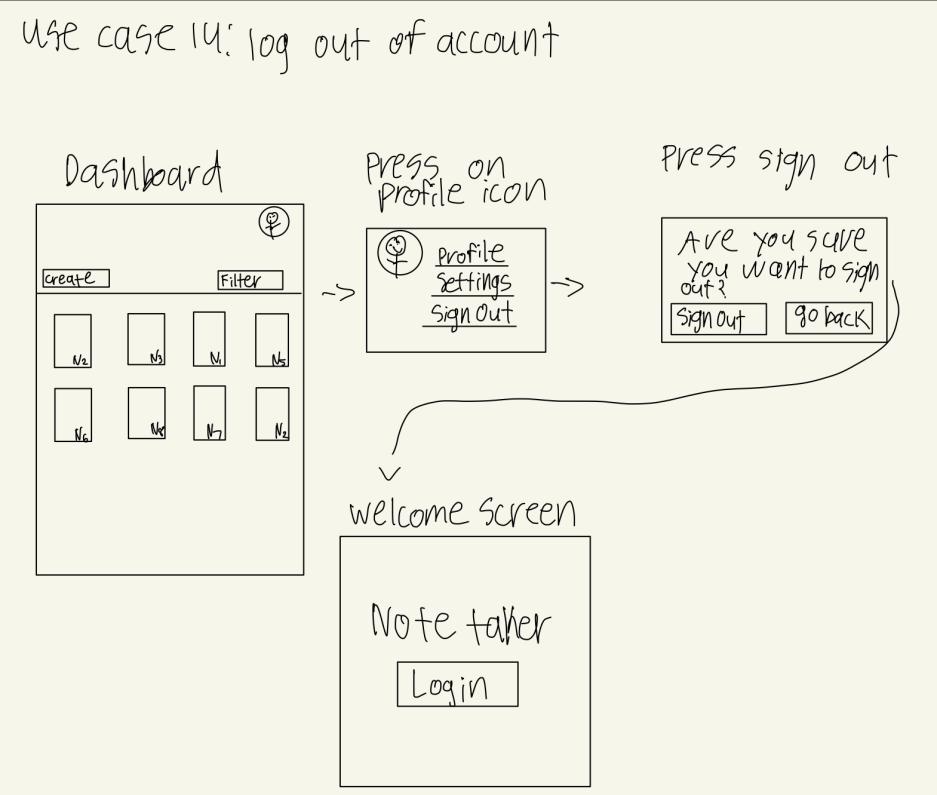 Use case 14: log out of account
Dashboard
Create
Filter
N2
N3
N1
N5
N6
N8
N7
N2
Press on
Profile icon
Profile
Settings
Sign Out
Press sign out
Are you sure
you want to sign
out?
Sign Out
go back
Welcome Screen
Note taker
Login